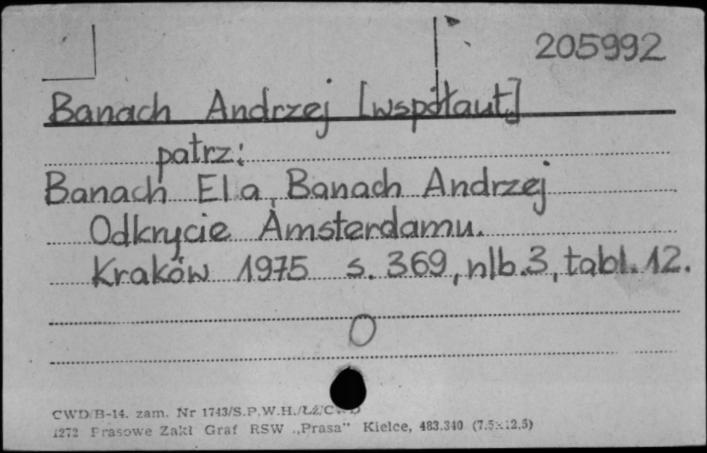 205992
Banach Andrzej [współaut.]
patrz:
Banach Ela, Banach Andrzej
Odkrycie Amsterdamu.
Kraków 1975 s. 369, nlb. 3, tabl. 12.
CWD/B-14. zam. Nr 1743/S.P.W.H./ŁŻ/CWD
1272 Prasowe Zakł Graf RSW „Prasa" Kielce, 483.340 (7.5×12.5)